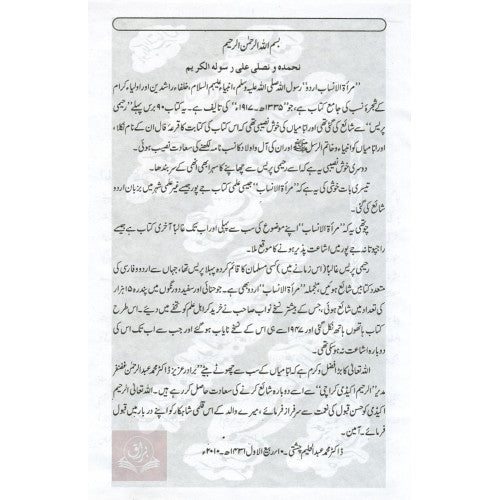 بسم اللہ الرحمٰن الرحیم
نحمدہ و نصلی علی رسولہ الکریم
’’مرأۃ الانساب اردو‘‘ رسول اللہ صلی اللہ علیہ وسلم، انبیاء علیہم السلام، خلفاء راشدین اور اولیاء کرام
کے شجرۂ نسب کی جامع کتاب ہے، جو ’’۱۳۳۵ھ۔۱۹۱۷ء‘‘ کی تالیف ہے۔ یہ کتاب ۹۰ برس پہلے ’’رحیمی
پریس‘‘ سے شائع کی گئی تھی اور ابا میاں کی خوش نصیبی تھی کہ اس کتاب کی کتابت کا قرعۂ فال ان کے نام نکلا،
اور ابا میاں کو انبیاء و خاتم الرسل ﷺ اور ان کی آل و اولاد کا نسب نامہ لکھنے کی سعادت نصیب ہوئی۔
دوسری خوش نصیبی یہ ہے کہ اسے رحیمی پریس سے چھاپنے کا سہرا بھی انھی کے سر بندھا۔
تیسری بات خوشی کی یہ ہے کہ ’’مرأۃ الانساب‘‘ جیسی علمی کتاب جے پور جیسے غیر علمی شہر میں بزبان اردو
شائع کی گئی۔
چوتھی یہ کہ ’’مرأۃ الانساب‘‘ اپنے موضوع کی سب سے پہلی اور اب تک غالباً آخری کتاب ہے جیسے
راجپوتانہ جے پور میں اشاعت پذیر ہونے کا موقع ملا۔
رحیمی پریس غالباً (اس زمانے میں) کسی مسلمان کا قائم کردہ پہلا پریس تھا، جہاں سے اردو و فارسی کی
متعدد کتابیں شائع ہوئیں، منجملہ ’’مرأۃ الانساب‘‘ اردو بھی ہے۔ جو حنائی اور سفید دو رنگوں میں پندرہ ۱۵ ہزار
کی تعداد میں شائع ہوئی، جس کے بیشتر نسخے نواب صاحب نے خرید کر اہل علم کو تحفے میں دیئے۔ اس طرح
کتاب ہاتھوں ہاتھ نکل گئی اور ۱۹۴۷ء سے ہی اس کے نسخے نایاب ہو گئے اور جب سے اب تک اس کی
دوبارہ اشاعت نہ ہو سکی تھی۔
اللہ تعالٰی کا بڑا فضل و کرم ہے کہ ابا میاں کے سب سے چھوٹے بیٹے ’’برادر عزیز ڈاکٹر محمد عبدالرحمٰن غضنفر
مدیر ’’الرحیم اکیڈمی کراچی‘‘ اسے دوبارہ شائع کرنے کی سعادت حاصل کر رہے ہیں۔ اللہ تعالٰی الرحیم
اکیڈمی کو حسن قبول کی نعمت سے سرفراز فرمائے، میرے والد کے اس قلمی شاہکار کو اپنے دربار میں قبول
فرمائے۔ آمین۔
ڈاکٹر محمد عبدالحلیم چشتی۔ ۱۰/ربیع الاول ۱۴۳۱ھ۔۲۰۱۰ء